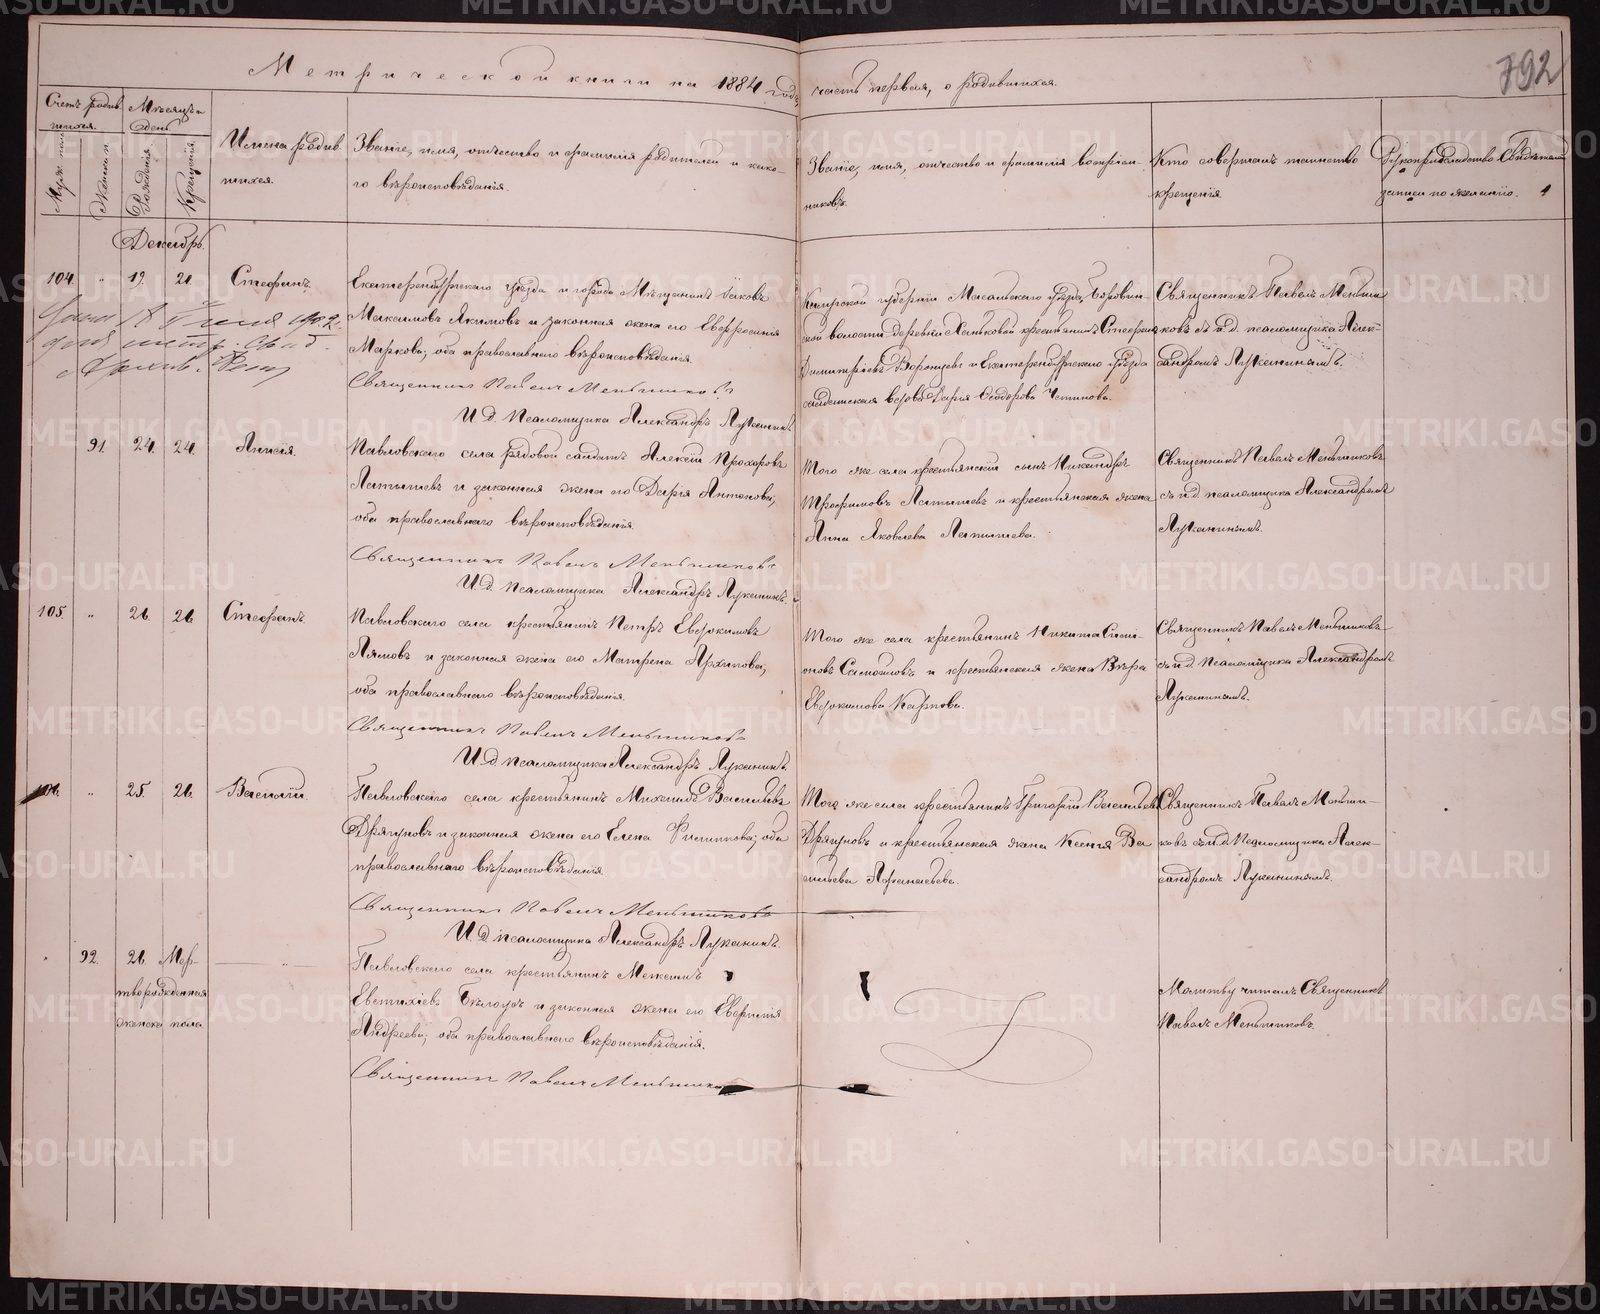 Метрической книги на 1884 годъ,
часть первая, о родившихся.
792
Счетъ родив-
шихся.
Мѣсяцъ и
день
Муж. пола
Женскаго п.
Рожденія
Крещенія
Имена родив-
шихся.
Званіе, имя, отчество и фамилія родителей и како-
го вѣроисповѣданія.
Званіе, имя, отчество и фамилія воспріем-
никовъ.
Кто совершалъ таинство
крещенія.
Рукоприкладство свидѣтелей
записи по желанію.
Декабрь.
104. " 19. 21. Стефанъ.
1902
Екатеринбургскаго уѣзда и города Мѣщанинъ Іаковъ
Максимовъ Якимовъ и законная жена его Евфросинія
Маркова; оба православнаго вѣроисповѣданія.
Священникъ Павелъ Меньшиковъ
И. д. Псаломщика Александръ Луканинъ
Калужской губерніи Масальскаго уѣзда,
волости деревни крестьянинъ Стефанъ
Димитріевъ Воронцевъ и Екатеринбургскаго уѣзда
вдова Дарія Ѳеодорова
Священникъ Павелъ Меньши-
ковъ съ и. д. псаломщика Алек-
сандромъ Луканинымъ.
91. 24. 24. Анисія.
Павловскаго села рядовой солдатъ Алексій Прохоровъ
Латышевъ и законная жена его Дарія Антонова;
оба православнаго вѣроисповѣданія.
Священникъ Павелъ Меньшиковъ
И. д. Псаломщика Александръ Луканинъ.
Того же села крестьянскій сынъ Никандръ
Трофимовъ Латышевъ и крестьянская жена
Анна Яковлева Латышева.
Священникъ Павелъ Меньшиковъ
съ и. д. псаломщика Александромъ
Луканинымъ.
105. " 26. 26. Стефанъ.
Павловскаго села крестьянинъ Петръ Евдокимовъ
Лямовъ и законная жена его Матрена Архипова;
оба православнаго вѣроисповѣданія.
Священникъ Павелъ Меньшиковъ
И. д. Псаломщика Александръ Луканинъ.
Того же села крестьянинъ Никита Симе-
оновъ Самойловъ и крестьянская жена Вѣра
Евдокимова Карпова.
Священникъ Павелъ Меньшиковъ
съ и. д. Псаломщика Александромъ
Луканинымъ.
106. " 25. 26. Василій.
Павловскаго села крестьянинъ Михаилъ Васильевъ
Дрягуновъ и законная жена его Елена Филиппова; оба
православнаго вѣроисповѣданія.
Священникъ Павелъ Меньшиковъ
И. д. псаломщика Александръ Луканинъ.
Того же села крестьянинъ Григорій Васильевъ
Дрягуновъ и крестьянская жена Ксенія Ва-
сильева Афанасьева.
Священникъ Павелъ Меньши-
ковъ съ и. д. Псаломщика Алек-
сандромъ Луканинымъ.
" 92. 26. Мер-
творожденная
женска пола.
Павловскаго села крестьянинъ
Евстихіевъ Бѣлоусъ и законная жена его
Андреева; оба православнаго вѣроисповѣданія.
Священникъ Павелъ Меньшиковъ
Молитву читалъ Священникъ
Павелъ Меньшиковъ.
METRIKI.GASO-URAL.RU